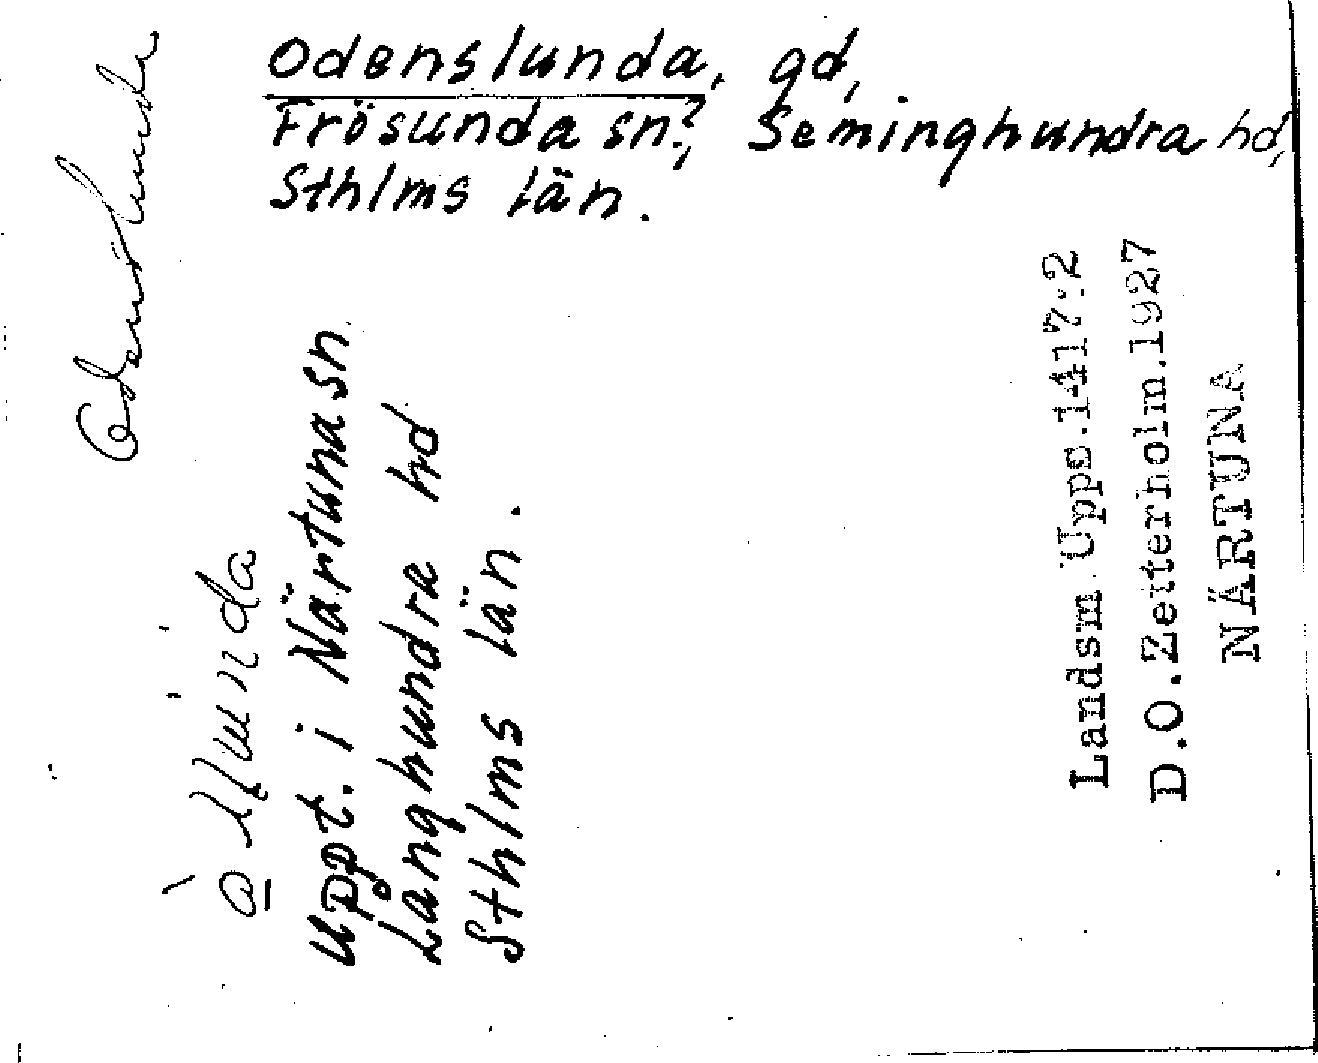 Odenslunda, gd,
Frösunda sn?, Seminghundra hd,
Sthlms län.
Odenslunda
uppt. i Närtuna sn.
Långhundra hd
Sthlms län.
Landsm. Upps. 1417:2
D.O. Zetterholm. 1927
NÄRTUNA